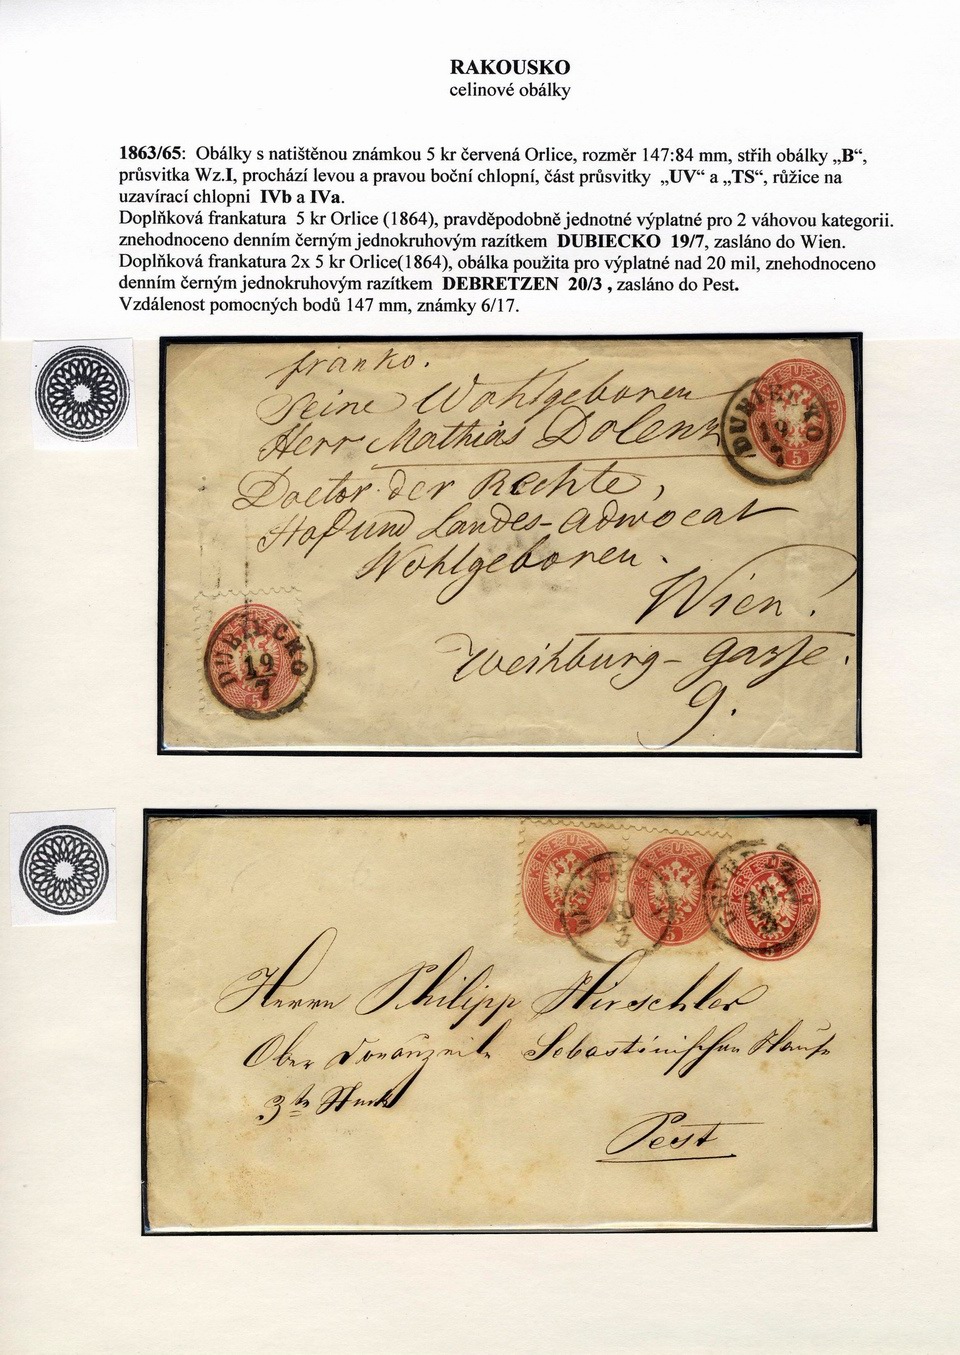 RAKOUSKO
celinové obálky
1863/65: Obálky s natištěnou známkou 5 kr červená Orlice, rozměr 147:84 mm, střih obálky „B“,
průsvitka Wz.I, prochází levou a pravou boční chlopní, část průsvitky „UV“ a „TS“, růžice na
uzavírací chlopni IVb a IVa.
Doplňková frankatura 5 kr Orlice (1864), pravděpodobně jednotné výplatné pro 2 váhovou kategorii.
znehodnoceno denním černým jednokruhovým razítkem DUBIECKO 19/7, zasláno do Wien.
Doplňková frankatura 2x 5 kr Orlice(1864), obálka použita pro výplatné nad 20 mil, znehodnoceno
denním černým jednokruhovým razítkem DEBRETZEN 20/3 , zasláno do Pest.
Vzdálenost pomocných bodů 147 mm, známky 6/17.
franko.
Seine Wohlgeboren
Herr Mathias Dolenz
Doctor der Rechte,
Hof und Landes-Adwocat
Wohlgeboren.
Wien!
Weihburg-gasse.
9.
DUBIECKO
19
7
5
DUBIECKO
19
7
5
KREUZER
5
Herrn Philipp Hirschler
Ober Donauzeile Sebastianischen Hause
3te Stock
Pest